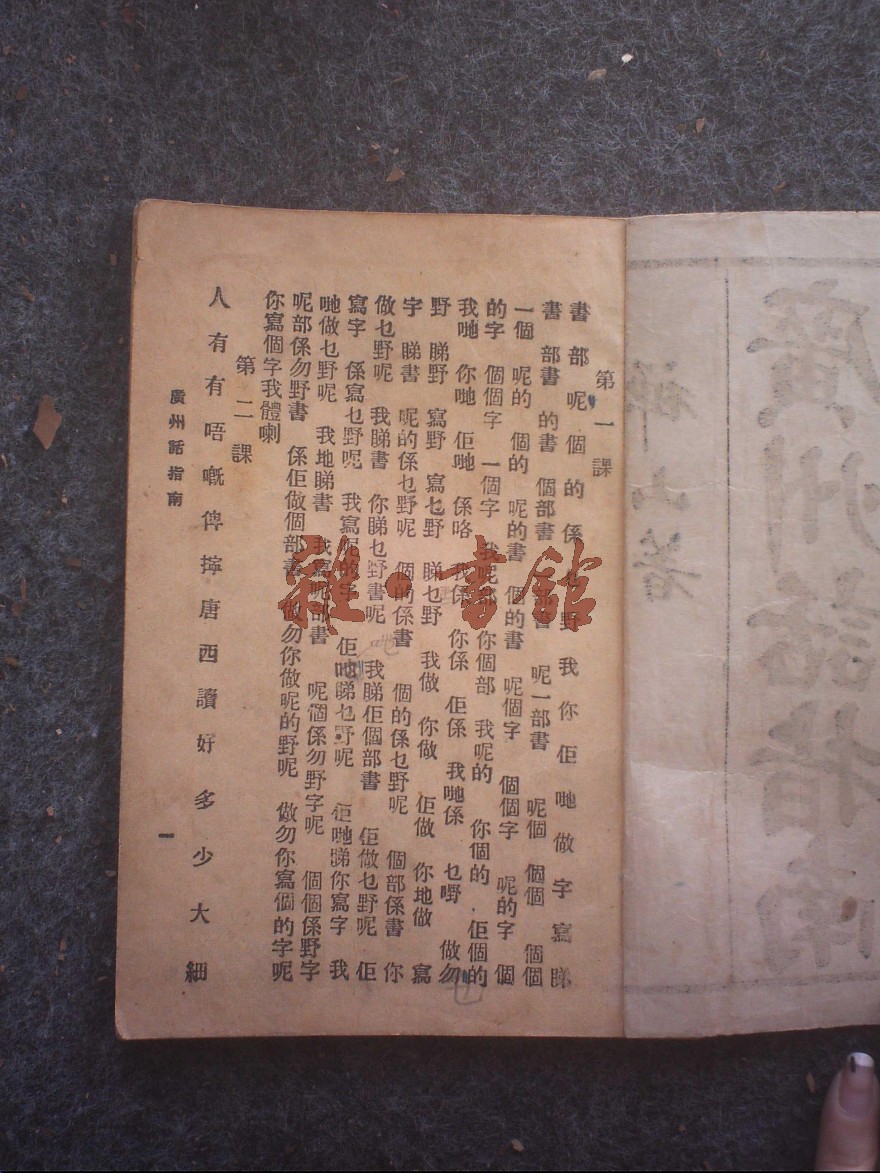 廣州話指南
山著
第一課
書 部 呢 個 的 係 乜 野 我 你 佢 哋 做 字 寫 睇
書 部書 的書 個部書 書 呢一部書 呢個 個個 個個
一個 呢的 個的 呢的書 個的書 呢個字 個個字 呢的字 個
的字 個個字 一個字 我呢部 你個部 我呢的 你個的 佢個的
我哋 你哋 佢哋 係咯 我係 你係 佢係 我哋係 乜嘢 做勿
野 睇野 寫野 寫乜野 睇乜野 我做 你做 佢做 你地做 寫
字 睇書 呢的係乜野呢 個的係書 個的係乜野呢 個部係書 你
做乜野呢 我睇書 你睇乜野書呢 我睇佢個部書 佢做乜野呢 佢
寫字 係寫乜野呢 我寫呢的字 佢哋睇乜野呢 佢哋睇你寫字 我
哋做乜野呢 我地睇書 我寫呢部書 呢個係勿野字呢 個個係野字
呢部係勿野書 係佢做個部書 做勿你做呢的野呢 做勿你寫個的字呢
你寫個字我體喇
第二課
人 有 有 唔 嘅 俾 擰 唐 西 讀 好 多 少 大 細
廣州話指南 一
雜·書館